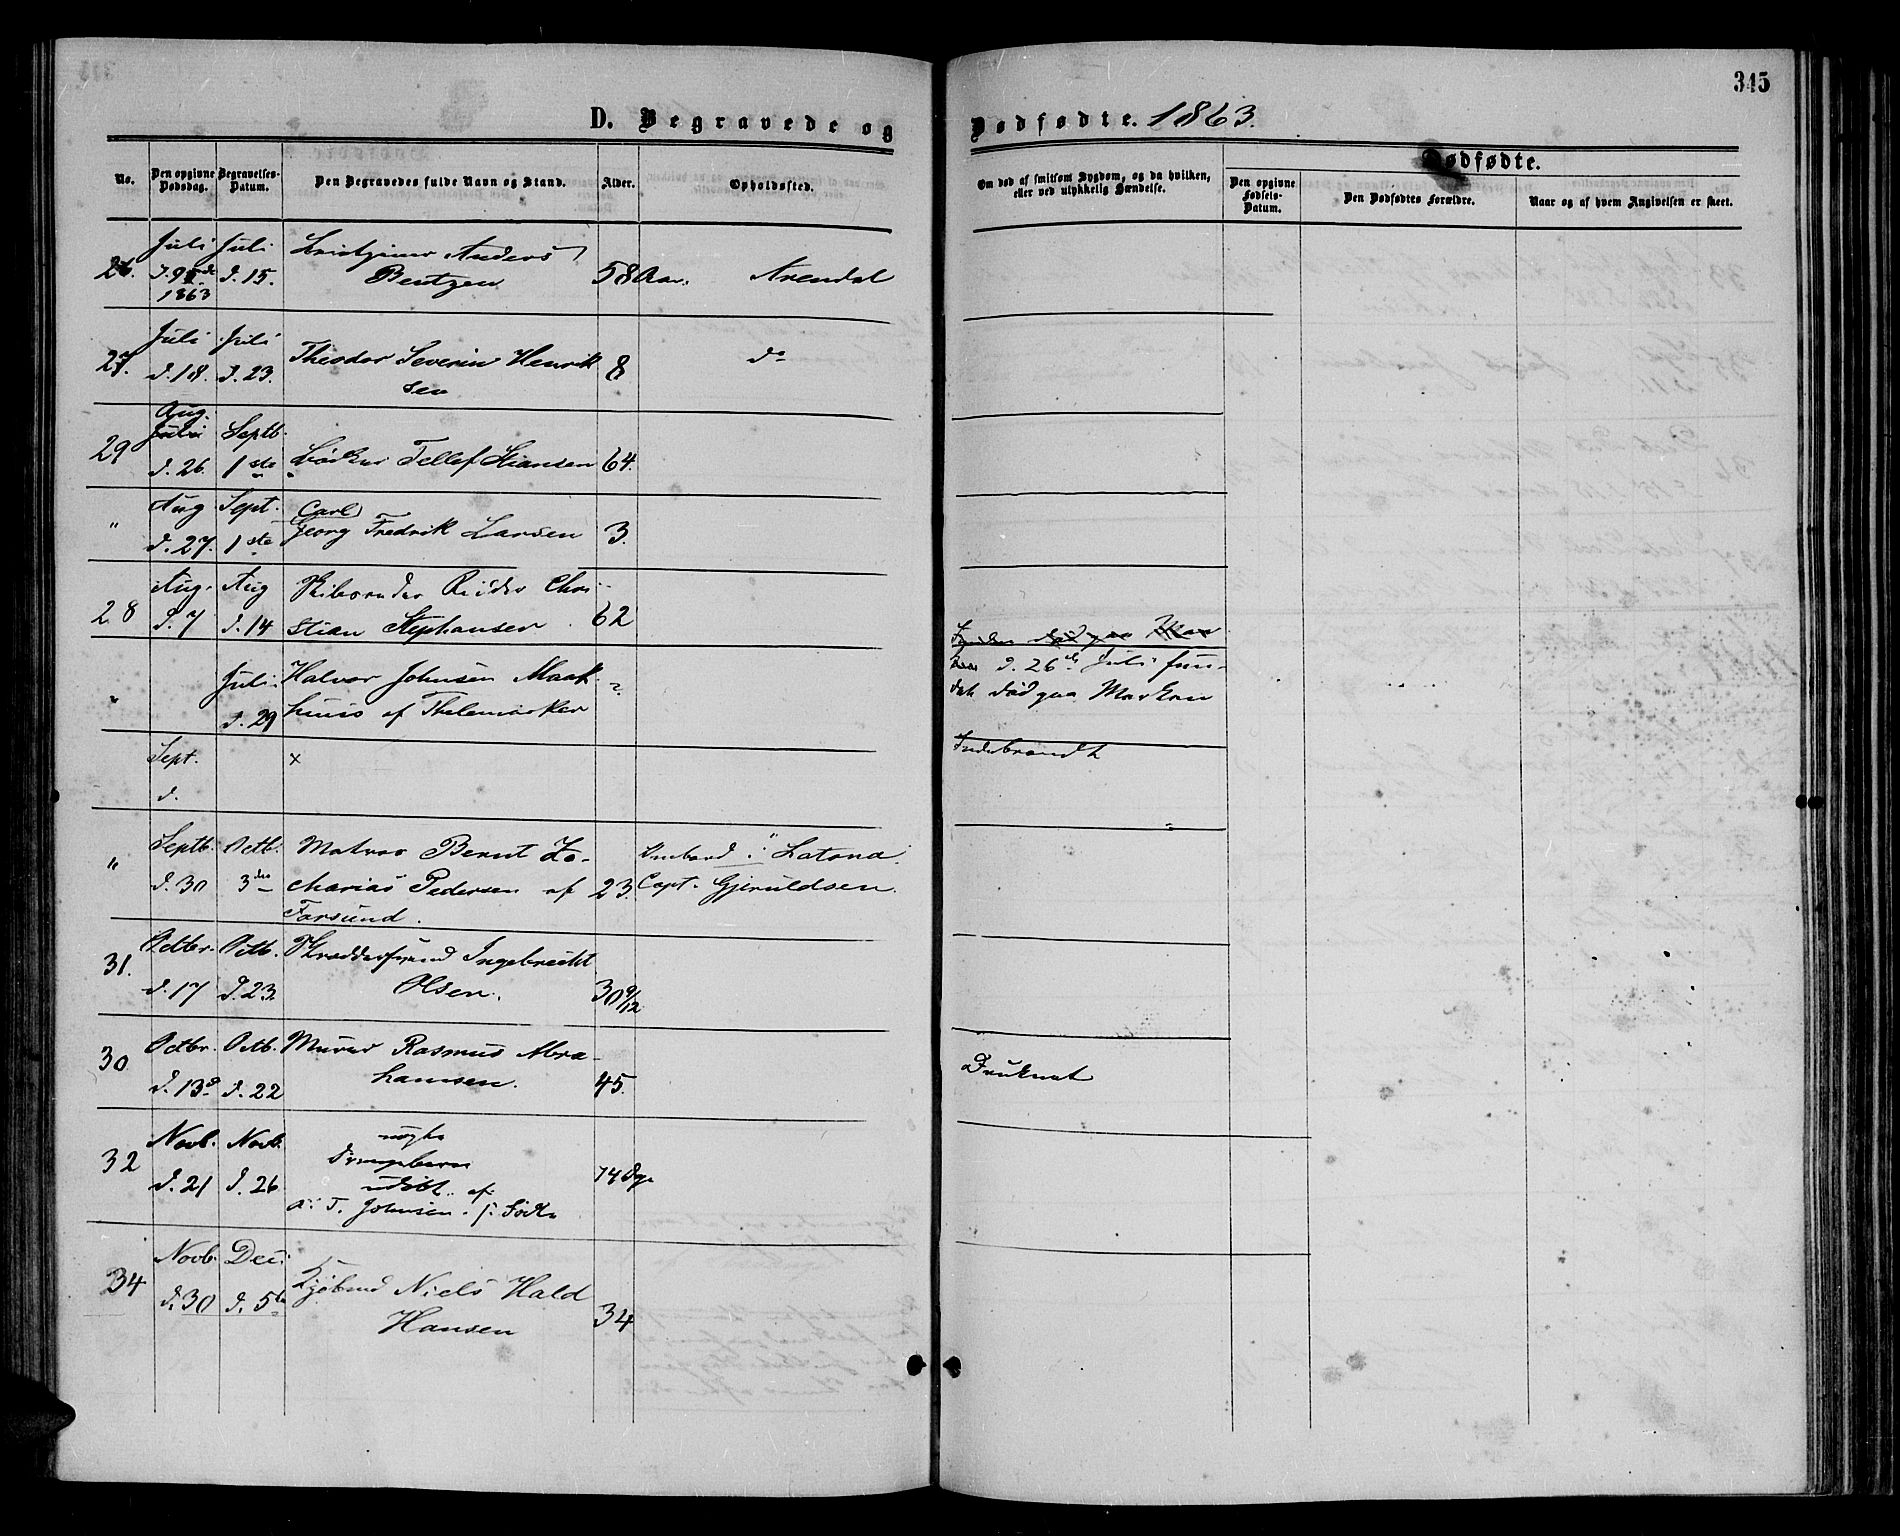 345
D. Begravede og Dødfødte. 1863.
No.
Den opgivne Dødsdag.
Begravelses-Datum.
Den Begravedes fulde Navn og Stand.
Alder.
Opholdssted.
Om død af smitsom Sygdom, og da hvilken, eller ved ulykkelig Hændelse.
Dødfødte.
Den opgivne Fødsels-Datum.
Den Dødfødtes Forældre.
Naar og af hvem Angivelsen er skeet.
26. Juli Juli Anders
d. 9de d. 15. Bentzen 58 Aar. Arendal
1863
27. Juli Juli
d. 18. d. 23. Theodor Severin Henrik 8 do
sen
Aug.
29 Juli Septb.
d. 26. 1ste Bødker Tellef Hansen 64.
" Aug Sept. Carl
d. 27. 1ste Georg Fredrik Larsen 3.
28 Aug. Aug Chri-
d. 7 d. 14 stian Stephansen 62
" Juli Halvor Johnsen Mark- ?
d. 29 huus af Thelemarken
d. 26de Juli fun-
det død paa Marken
Sept. x
d.
" Septb. Octb. Matros Bernt Za- Ombord i "Latona"
d. 30 3die charias Pedersen af 23. Capt. Gjeruldsen.
Farsund.
31. Octbr. Octb. Ingebrecht
d. 17 d. 23. Olsen. 30 9/12
30 Octbr. Octb. Murer Rasmus Abra-
d. 13de d. 22 hamsen. 45. Druknet
32 Novb. Novb. uægte
d. 21 d. 26 Drengebarn 14 Dge
udøbt af
T. Johnsen
34 Novb. Dec.
d. 30 d. 5te Kjøbmd Niels Hald
Hansen 34